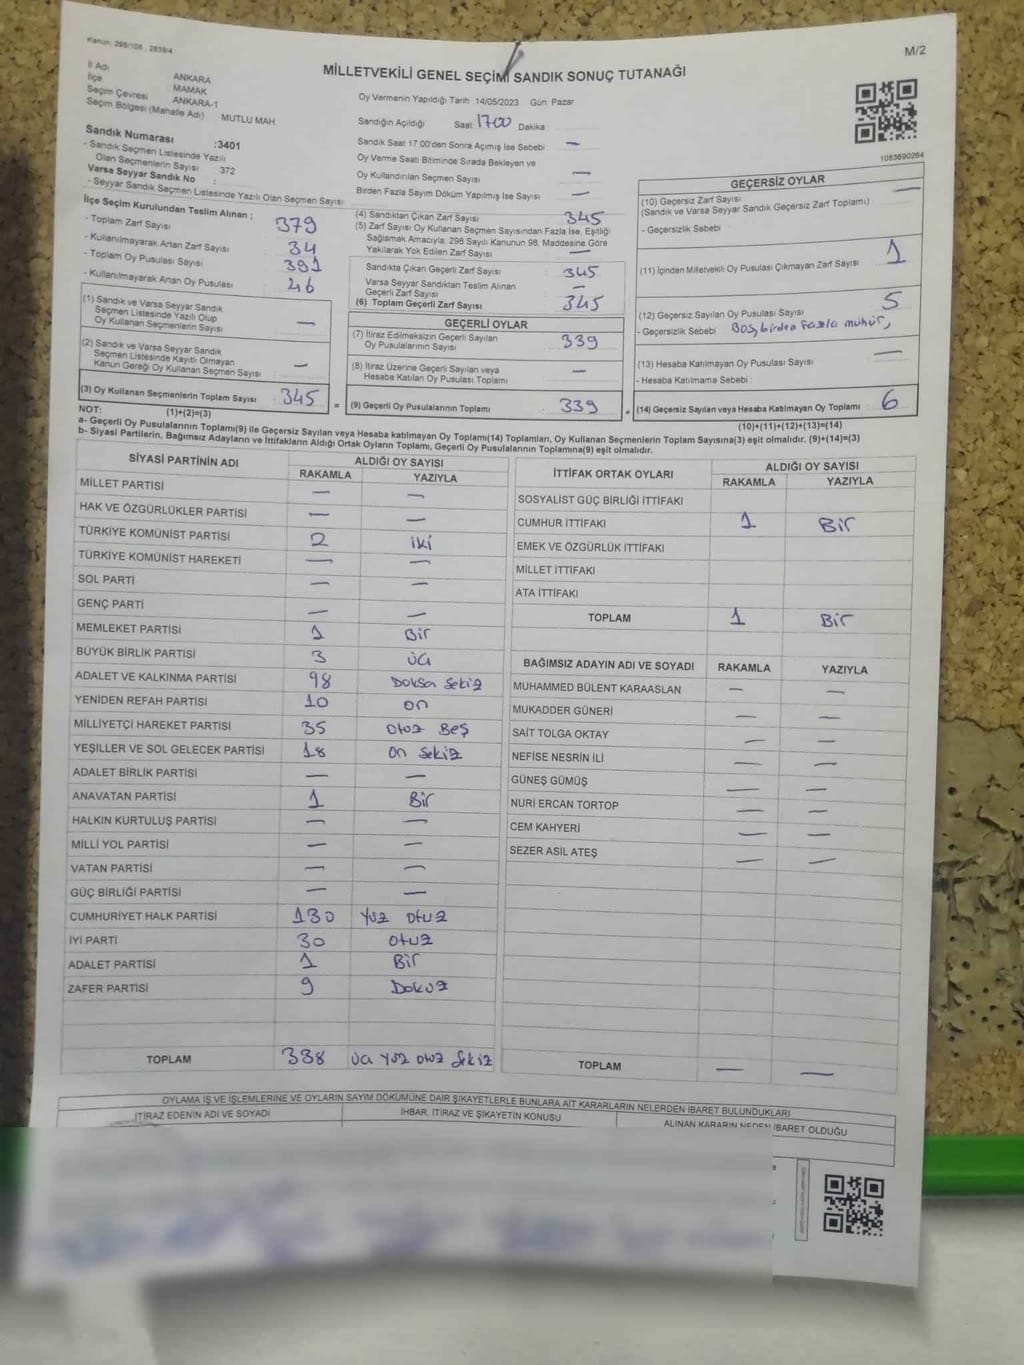 Kanun: 298/108 , 2839/4
M/2
MİLLETVEKİLİ GENEL SEÇİMİ SANDIK SONUÇ TUTANAĞI
İl Adı ANKARA
İlçe MAMAK
Seçim Çevresi ANKARA-1
Seçim Bölgesi (Mahalle Adı) MUTLU MAH.
Sandık Numarası :3401
- Sandık Seçmen Listesinde Yazılı
Olan Seçmenlerin Sayısı 372
Varsa Seyyar Sandık No :
- Seyyar Sandık Seçmen Listesinde Yazılı Olan Seçmen Sayısı:
Oy Vermenin Yapıldığı Tarih 14/05/2023 Gün: Pazar
Sandığın Açıldığı Saat: 1700 Dakika :
Sandık Saat 17 00'den Sonra Açımış İse Sebebi : —
Oy Verme Saati Bitiminde Sırada Bekleyen ve
Oy Kullandırılan Seçmen Sayısı : —
Birden Fazla Sayım Döküm Yapılmış İse Sayısı : —
1083690264
İlçe Seçim Kurulundan Teslim Alınan ;
- Toplam Zarf Sayısı : 379
- Kullanılmayarak Artan Zarf Sayısı : 34
- Toplam Oy Pusulası Sayısı : 391
- Kullanılmayarak Artan Oy Pusulası : 46
(1) Sandık ve Varsa Seyyar Sandık
Seçmen Listesinde Yazılı Olup
Oy Kullanan Seçmenlerin Sayısı : —
(2) Sandık ve Varsa Seyyar Sandık
Seçmen Listesinde Kayıtlı Olmayan
Kanun Gereği Oy Kullanan Seçmen Sayısı : —
(3) Oy Kullanan Seçmenlerin Toplam Sayısı : 345
(1)+(2)=(3)
(4) Sandıktan Çıkan Zarf Sayısı : 345
(5) Zarf Sayısı Oy Kullanan Seçmen Sayısından Fazla İse, Eşitliği
Sağlamak Amacıyla, 298 Sayılı Kanunun 98. Maddesine Göre
Yakılarak Yok Edilen Zarf Sayısı : —
Sandıkta Çıkan Geçerli Zarf Sayısı : 345
Varsa Seyyar Sandıktan Teslim Alınan
Geçerli Zarf Sayısı : —
(6) Toplam Geçerli Zarf Sayısı : 345
GEÇERLİ OYLAR
(7) İtiraz Edilmeksizin Geçerli Sayılan
Oy Pusulalarının Sayısı : 339
(8) İtiraz Üzerine Geçerli Sayılan veya
Hesaba Katılan Oy Pusulası Toplamı : —
= (9) Geçerli Oy Pusulalarının Toplamı : 339 +
GEÇERSİZ OYLAR
(10) Geçersiz Zarf Sayısı : —
(Sandık ve Varsa Seyyar Sandık Geçersiz Zarf Toplamı)
- Geçersizlik Sebebi :
(11) İçinden Milletvekili Oy Pusulası Çıkmayan Zarf Sayısı : 1
(12) Geçersiz Sayılan Oy Pusulası Sayısı : 5
- Geçersizlik Sebebi : Boş, birden fazla mühür,
(13) Hesaba Katılmayan Oy Pusulası Sayısı : —
- Hesaba Katılmama Sebebi :
(14) Geçersiz Sayılan veya Hesaba Katılmayan Oy Toplamı : 6
(10)+(11)+(12)+(13)=(14)
NOT:
a- Geçerli Oy Pusulalarının Toplamı(9) İle Geçersiz Sayılan veya Hesaba katılmayan Oy Toplamı(14) Toplamları, Oy Kullanan Seçmenlerin Toplam Sayısına(3) eşit olmalıdır. (9)+(14)=(3)
b- Siyasi Partilerin, Bağımsız Adayların ve İttifakların Aldığı Ortak Oyların Toplamı, Geçerli Oy Pusulalarının Toplamına(9) eşit olmalıdır.
SİYASİ PARTİNİN ADI ALDIĞI OY SAYISI
RAKAMLA YAZIYLA
MİLLET PARTİSİ — —
HAK VE ÖZGÜRLÜKLER PARTİSİ — —
TÜRKİYE KOMÜNİST PARTİSİ 2 iki
TÜRKİYE KOMÜNİST HAREKETİ — —
SOL PARTİ — —
GENÇ PARTİ — —
MEMLEKET PARTİSİ 1 Bir
BÜYÜK BİRLİK PARTİSİ 3 üç
ADALET VE KALKINMA PARTİSİ 98 Doksa Sekiz
YENİDEN REFAH PARTİSİ 10 on
MİLLİYETÇİ HAREKET PARTİSİ 35 otuz Beş
YEŞİLLER VE SOL GELECEK PARTİSİ 18 on Sekiz
ADALET BİRLİK PARTİSİ — —
ANAVATAN PARTİSİ 1 Bir
HALKIN KURTULUŞ PARTİSİ — —
MİLLİ YOL PARTİSİ — —
VATAN PARTİSİ — —
GÜÇ BİRLİĞİ PARTİSİ — —
CUMHURİYET HALK PARTİSİ 130 Yüz otuz
İYİ PARTİ 30 otuz
ADALET PARTİSİ 1 Bir
ZAFER PARTİSİ 9 Dokuz
TOPLAM 338 üç Yüz otuz Sekiz
İTTİFAK ORTAK OYLARI ALDIĞI OY SAYISI
RAKAMLA YAZIYLA
SOSYALİST GÜÇ BİRLİĞİ İTTİFAKI
CUMHUR İTTİFAKI 1 Bir
EMEK VE ÖZGÜRLÜK İTTİFAKI
MİLLET İTTİFAKI
ATA İTTİFAKI
TOPLAM 1 Bir
BAĞIMSIZ ADAYIN ADI VE SOYADI RAKAMLA YAZIYLA
MUHAMMED BÜLENT KARAASLAN — —
MUKADDER GÜNERİ — —
SAİT TOLGA OKTAY — —
NEFİSE NESRİN İLİ — —
GÜNEŞ GÜMÜŞ — —
NURİ ERCAN TORTOP — —
CEM KAHYERİ — —
SEZER ASİL ATEŞ — —
TOPLAM — —
OYLAMA İŞ VE İŞLEMLERİNE VE OYLARIN SAYIM DÖKÜMÜNE DAİR ŞİKAYETLERLE BUNLARA AİT KARARLARIN NELERDEN İBARET BULUNDUKLARI
İTİRAZ EDENİN ADI VE SOYADI İHBAR, İTİRAZ VE ŞİKAYETİN KONUSU ALINAN KARARIN NEDEN İBARET OLDUĞU